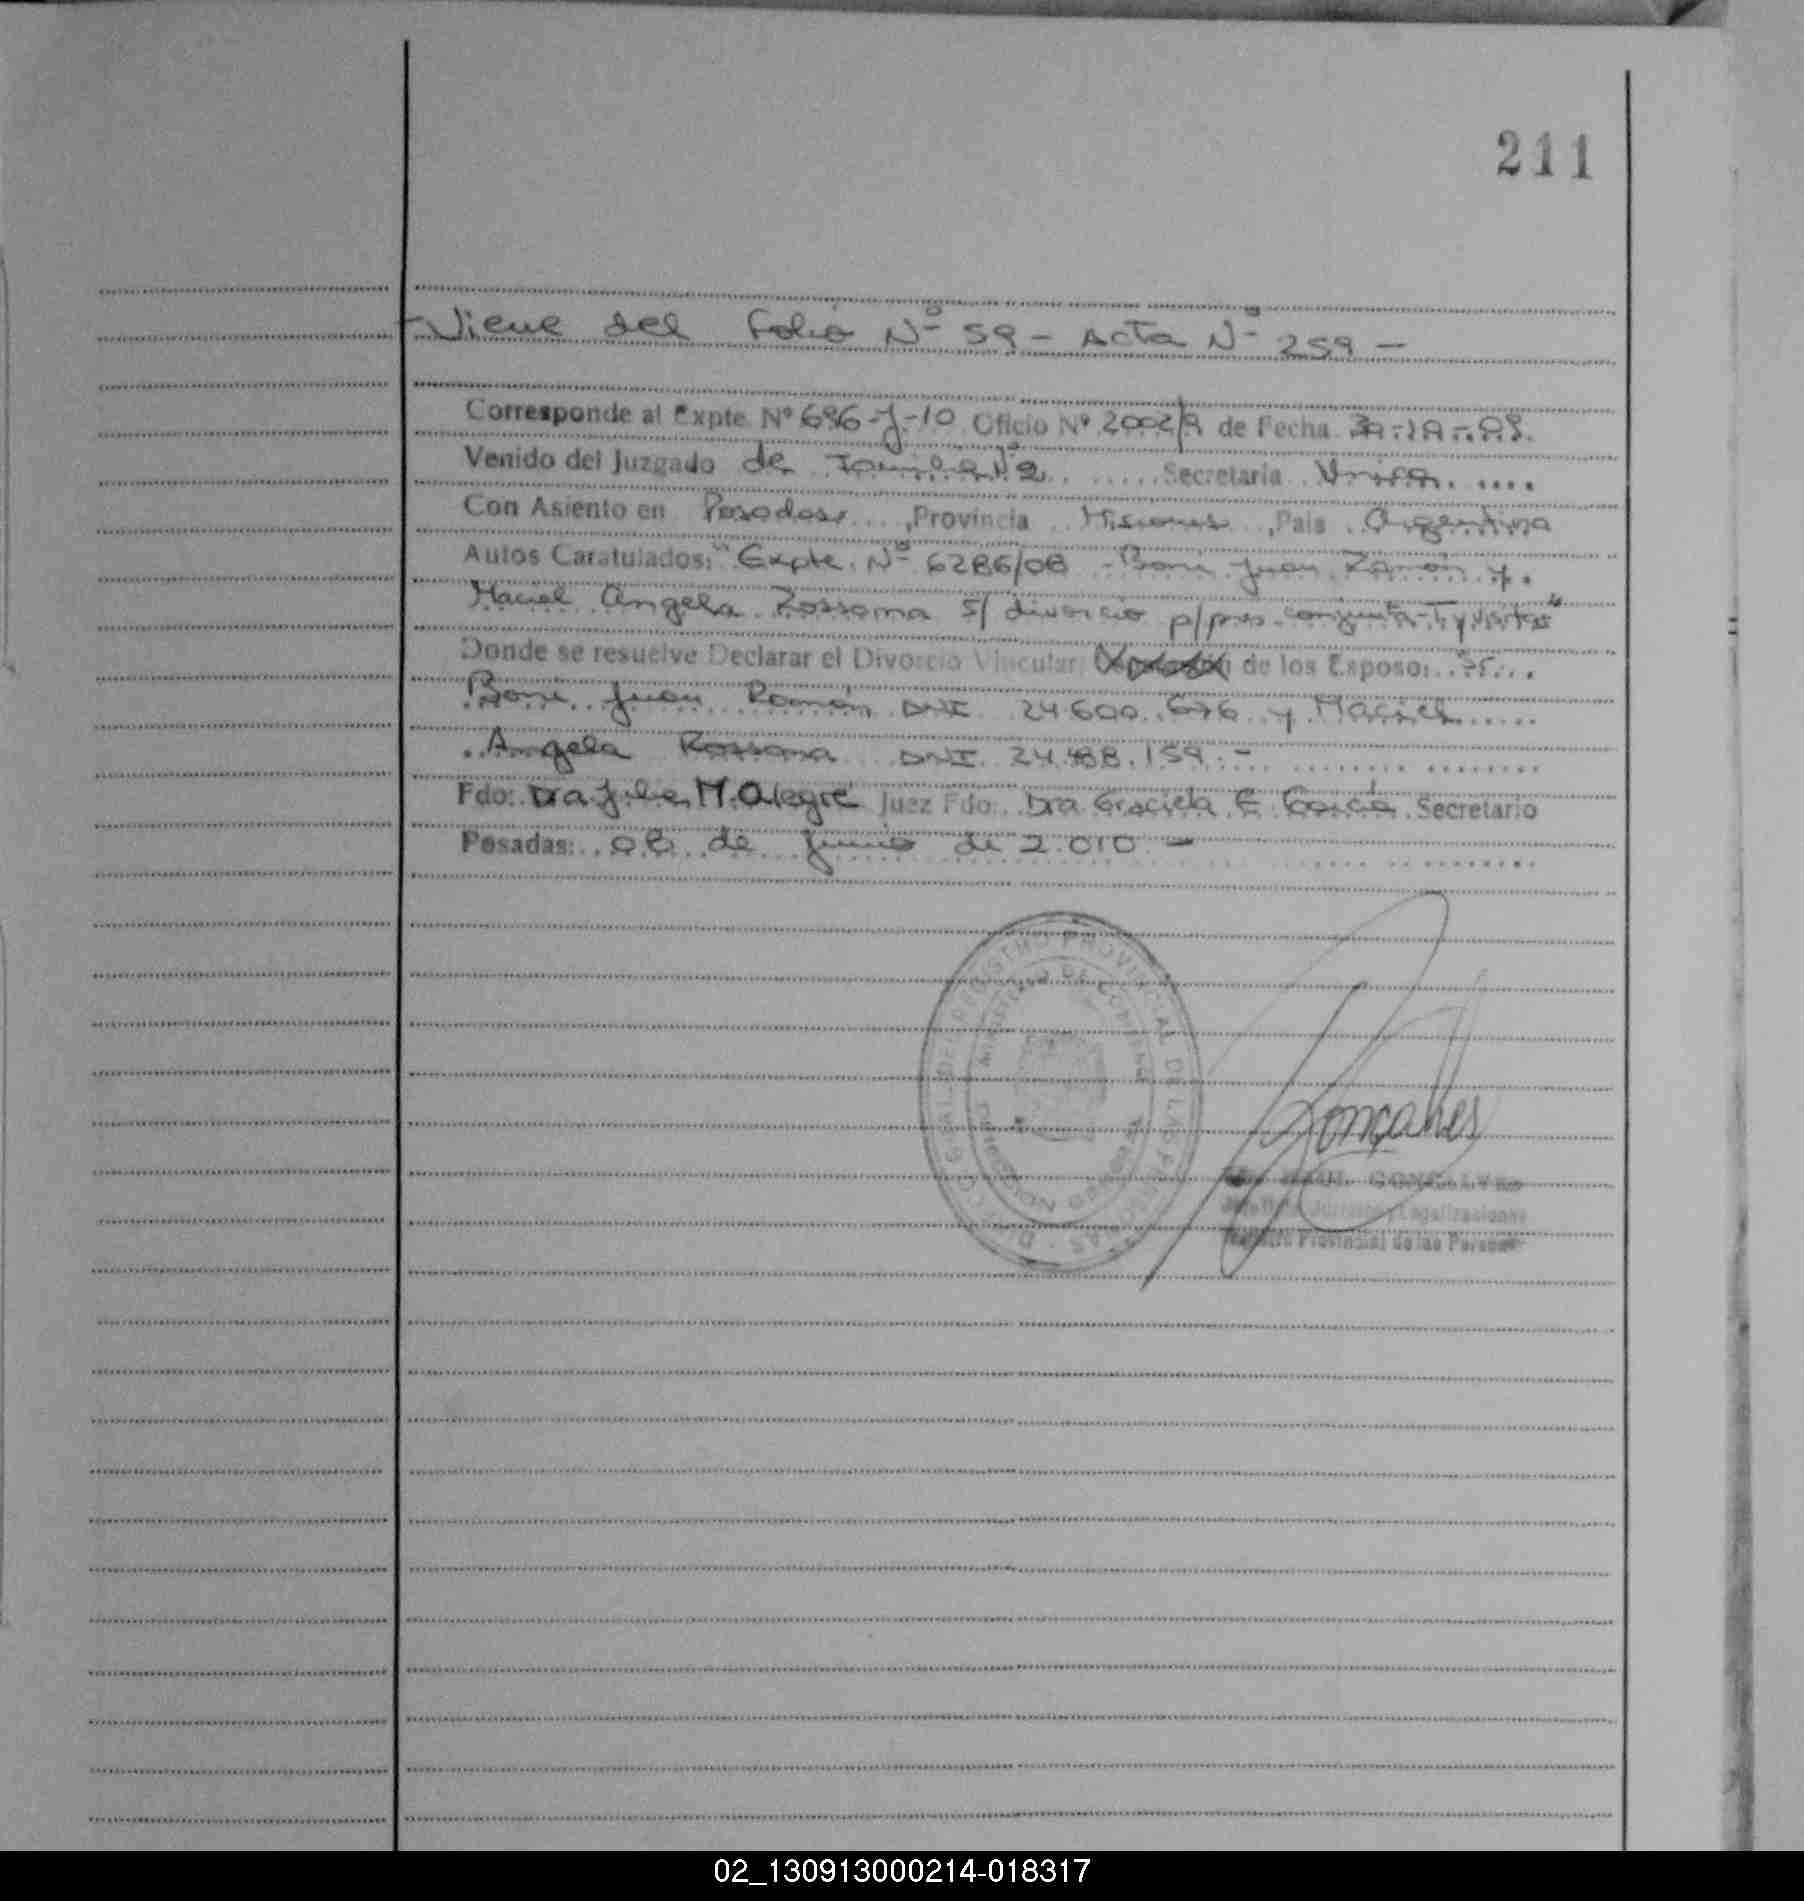 211
Viene del Folio Nº 59 - Acta Nº 259 -
Corresponde al Expte. Nº 696-J-10 Oficio Nº 2002/9 de Fecha
Venido del Juzgado de Familia Nº 2 Secretaria Unica
Con Asiento en Posadas, Provincia Misiones, Pais Argentina
Autos Caratulados: "Expte. Nº 6286/08 - Juan Ramón y
Maciel Angela Rossana s/ divorcio p/pres. conjunta
Donde se resuelve Declarar el Divorcio Vincular de los Esposo:
Juan Ramón DNI 24.600.676 y Maciel
Angela Rossana DNI 24.488.159.-
Fdo: Dra Julia M. Alegre Juez Fdo: Dra Graciela E. García Secretario
Posadas: 08 de Junio de 2.010 -
REGISTRO PROVINCIAL DE LAS PERSONAS
MINISTERIO DE GOBIERNO
Gonçalves
RAUL GONCALVES
Legalizaciones
Registro Provincial de las Personas
02_130913000214-018317